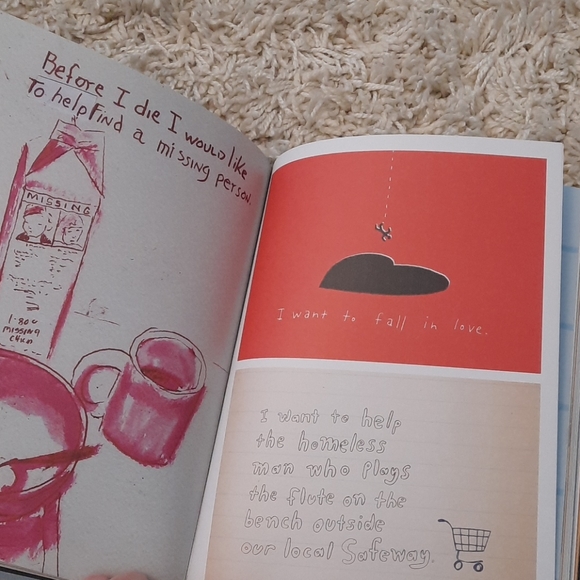 Before I die I would like
To help Find a missing person.
MISSING
1-800
missing
I want to fall in love.
I want to help
the homeless
man who plays
the flute on the
bench outside
our local Safeway.